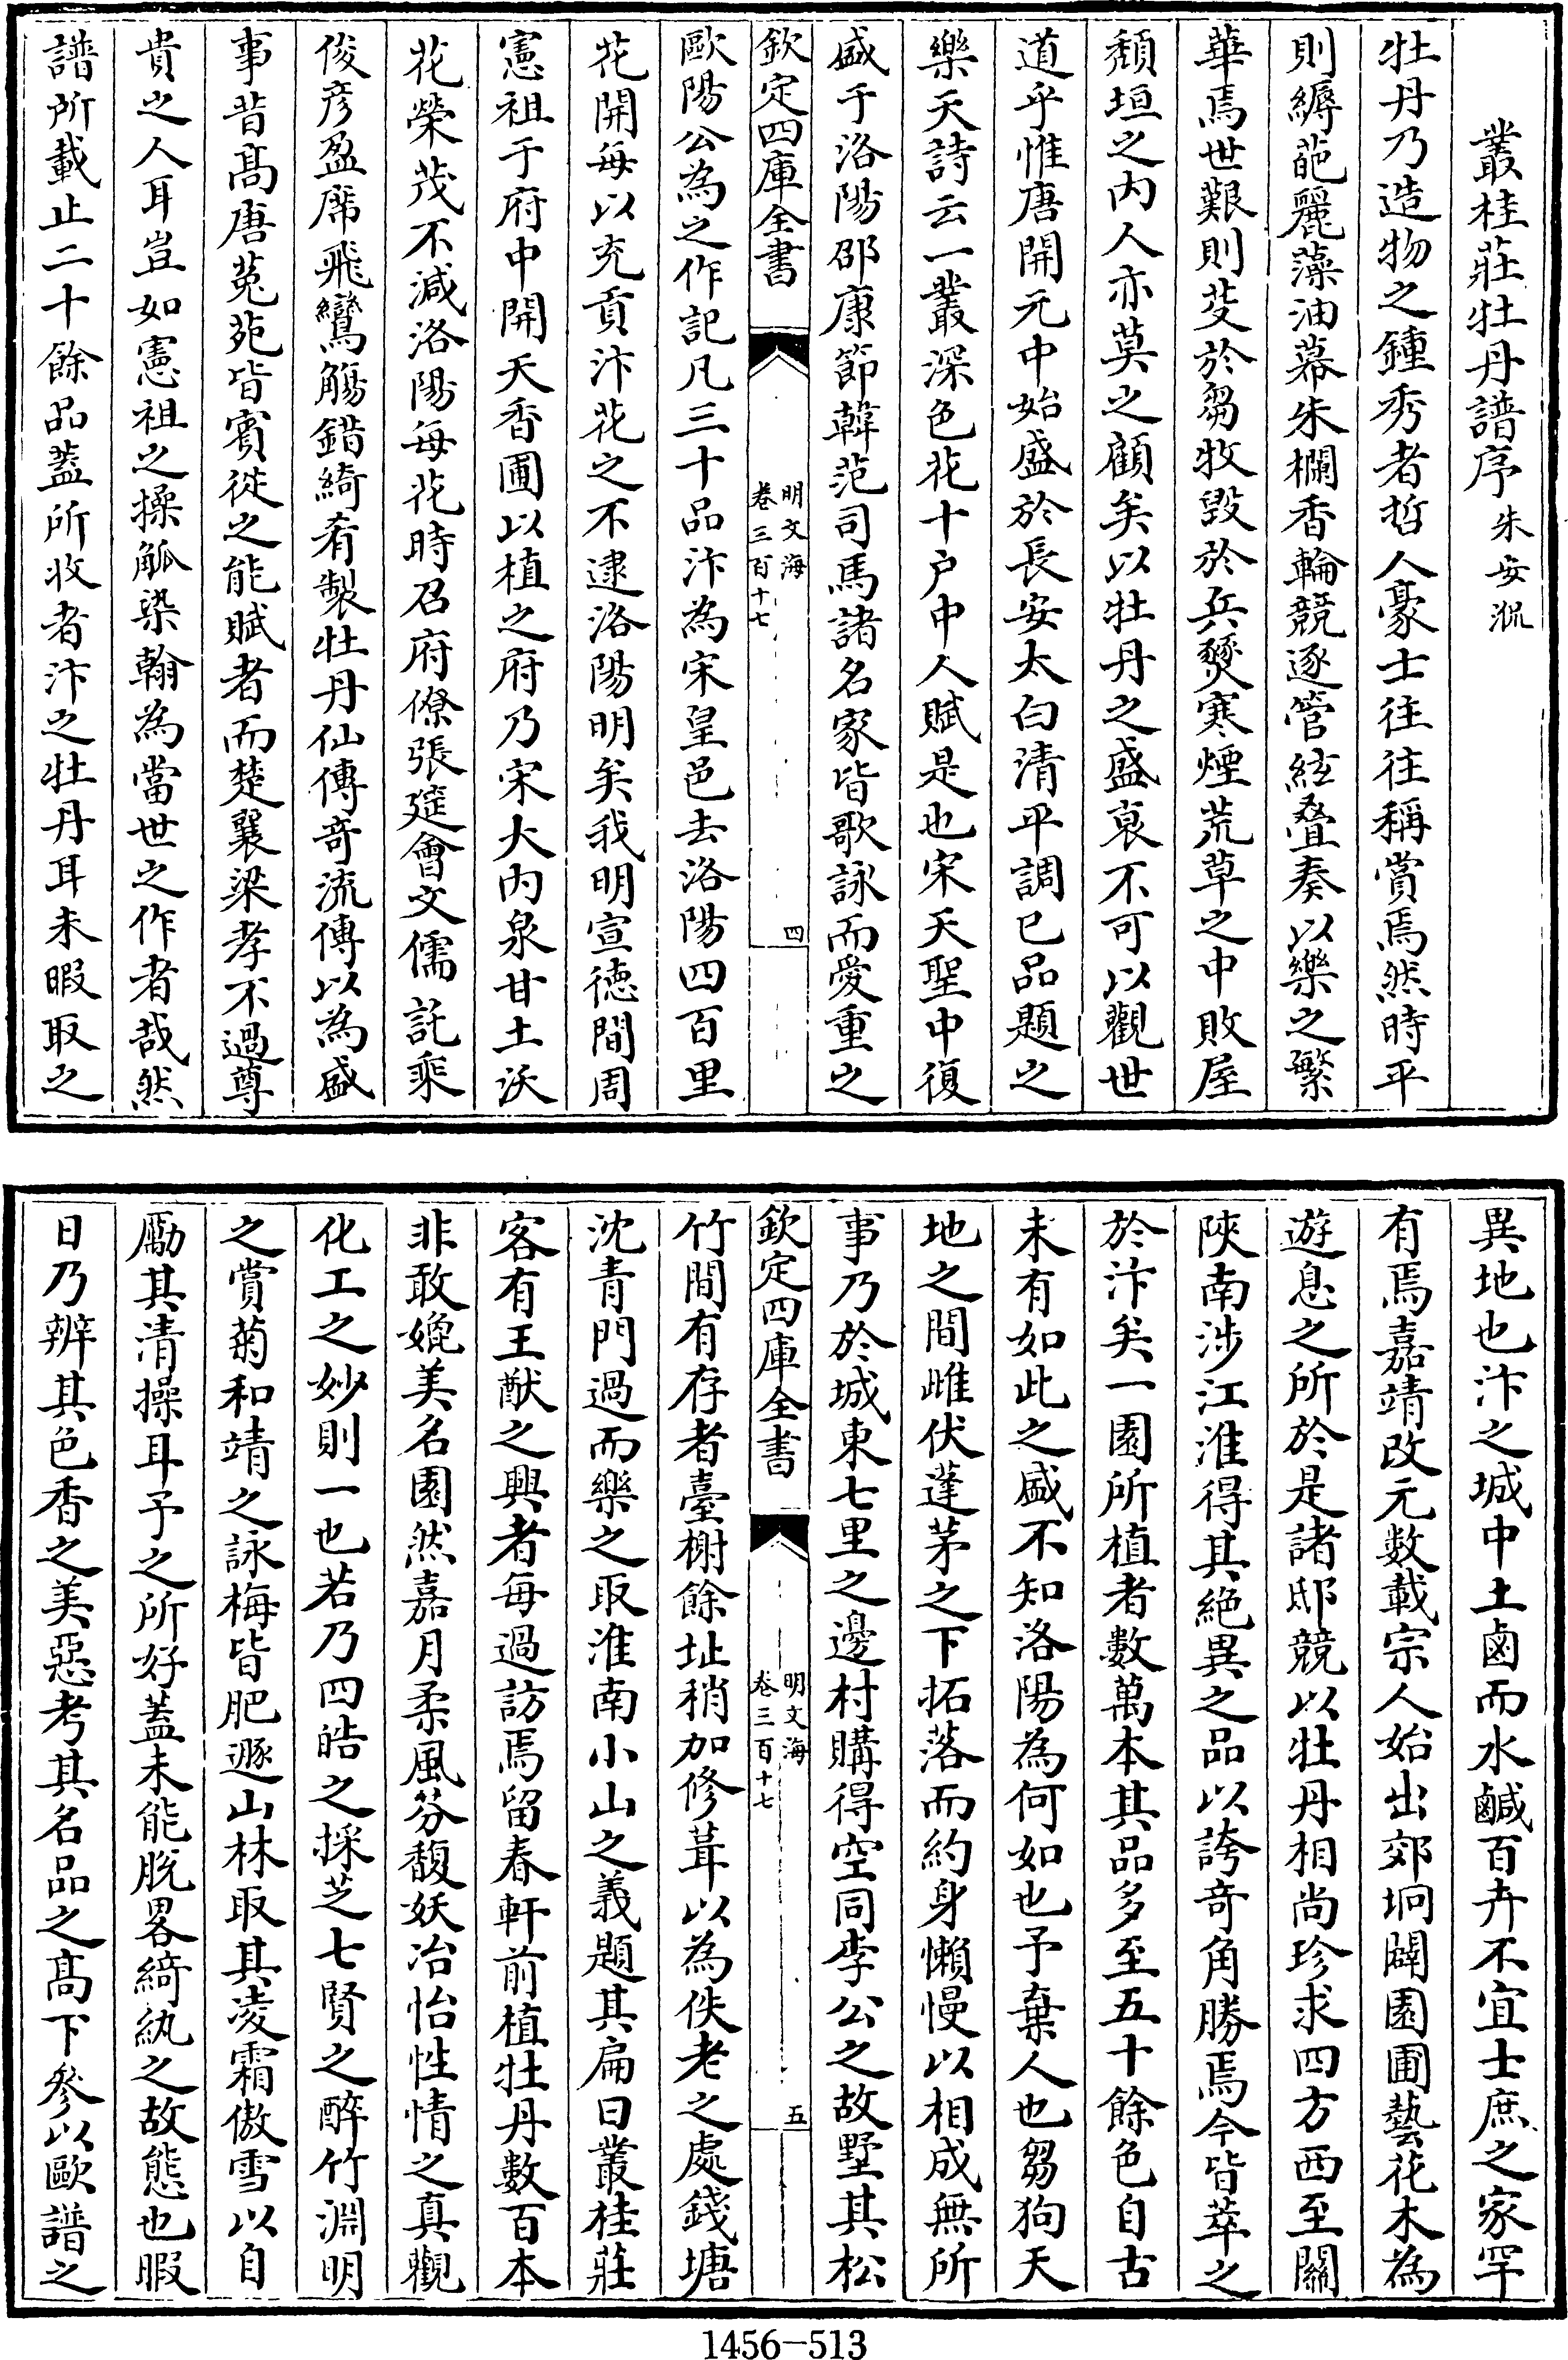 叢桂莊牡丹譜序 朱安㳦
牡丹乃造物之鍾秀者哲人豪士往往稱賞焉然時平
則縟葩麗藻油幕朱欄香輪競逐管絃疊奏以樂之繁
華焉世艱則芟於芻牧毀於兵燹寒煙荒草之中敗屋
頹垣之內人亦莫之顧矣以牡丹之盛衰不可以觀世
道乎惟唐開元中始盛於長安太白清平調已品題之
樂天詩云一叢深色花十户中人賦是也宋天聖中復
盛于洛陽邵康節韓范司馬諸名家皆歌詠而愛重之
欽定四庫全書
明文海
卷三百十七
四
歐陽公為之作記凡三十品汴為宋皇邑去洛陽四百里
花開每以充貢汴花之不逮洛陽明矣我明宣德間周
憲祖于府中開天香圃以植之府乃宋大内泉甘土沃
花榮茂不減洛陽每花時召府僚張筵會文儒託乘
俊彦盈席飛鸞觴錯綺肴製牡丹仙傳奇流傳以為盛
事昔髙唐菟苑皆賓從之能賦者而楚襄梁孝不過尊
貴之人耳豈如憲祖之操觚染翰為當世之作者哉然
譜所載止二十餘品蓋所收者汴之牡丹耳未暇取之
異地也汴之城中土鹵而水鹹百卉不宜士庶之家罕
有焉嘉靖改元數載宗人始出郊坰闢園圃藝花木為
遊息之所於是諸邸競以牡丹相尚珍求四方西至關
陜南涉江淮得其絶異之品以誇奇角勝焉今皆萃之
於汴矣一園所植者數萬本其品多至五十餘色自古
未有如此之盛不知洛陽為何如也予棄人也芻狗天
地之間雌伏蓬茅之下拓落而約身懶慢以相成無所
事乃於城東七里之邊村購得空同李公之故墅其松
欽定四庫全書
明文海
卷三百十七
五
竹間有存者臺榭餘址稍加修葺以為佚老之處錢塘
沈青門過而樂之取淮南小山之義題其扁曰叢桂莊
客有王猷之興者每過訪焉留春軒前植牡丹數百本
非敢媲美名園然嘉月柔風芬馥妖冶怡性情之真觀
化工之妙則一也若乃四皓之採芝七賢之醉竹淵明
之賞菊和靖之詠梅皆肥遯山林取其凌霜傲雪以自
勵其清操耳予之所好蓋未能脫畧綺紈之故態也暇
日乃辨其色香之美惡考其名品之髙下參以歐譜之
1456-513